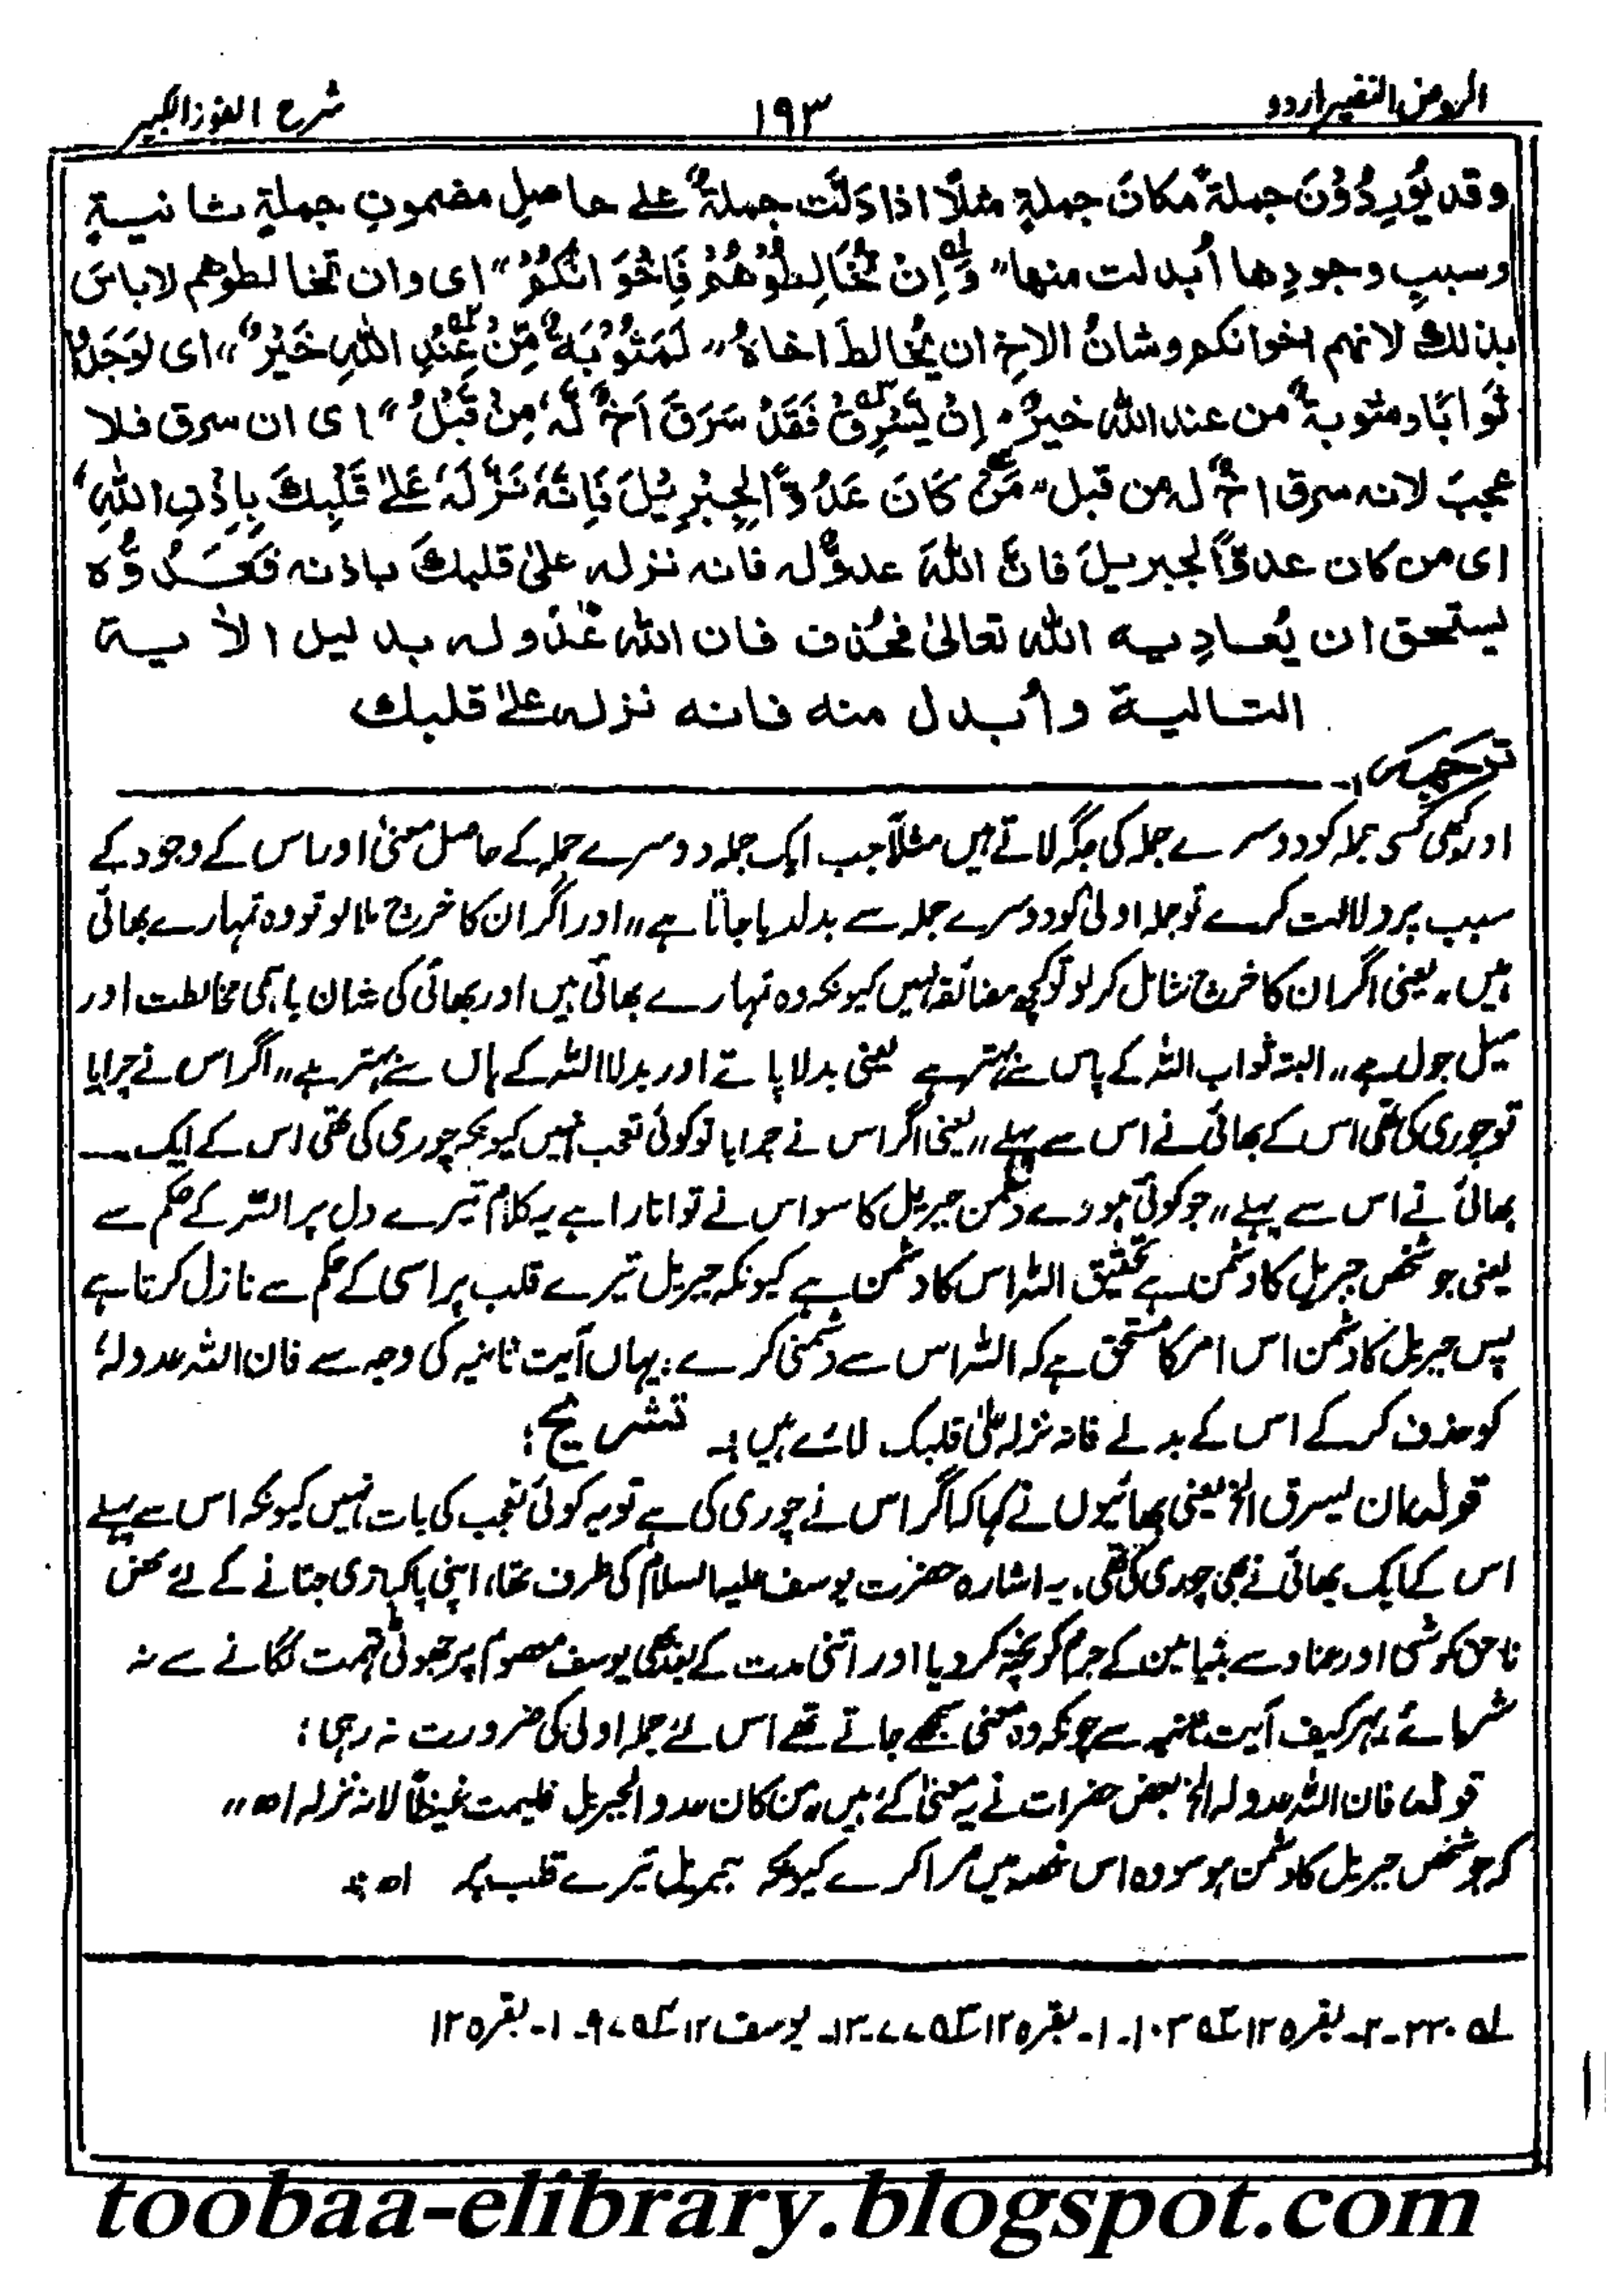 الروض النضیر اردو
۱۹۳
شرح الفوز الکبیر
وقد یُورِدُوْنَ جملةً مکانَ جملةٍ مثلًا اذا دَلَّت جملةٌ علے حاصلِ مضمونِ جملةٍ ثانیــةٍ
وسببِ وجودِها اُبدلت منها "وَاِنْ تُخَالِطُوْهُمْ فَاِخْوَانُكُمْ" ای وان تخالطوهم لاباسَ
بذالك لانهم اخوانکم وشانُ الاخ ان یُخالطَ اخاهُ "لَمَثُوْبَةٌ مِّنْ عِنْدِ اللهِ خَیْرٌ" ای لَوَجَدُوْا
ثَوابًا ومثوبةٌ من عند الله خیرٌ، اِنْ یَّسْرِقْ فَقَدْ سَرَقَ اَخٌ لَّهٗ مِنْ قَبْلُ" ای ان سرق فلا
عجبَ لانه سرق اخٌ له من قبل "مَنْ كَانَ عَدُوًّا لِّجِبْرِیْلَ فَاِنَّهٗ نَزَّلَهٗ عَلٰے قَلْبِكَ بِاِذْنِ اللهِ"
ای من کان عدوًّا لجبریلَ فانَّ اللهَ عدوٌّ له فانه نزله علیٰ قلبكَ باذنه فَعَــدُوُّه
یستحق ان یُعــادِیــه اللهُ تعالیٰ فحُذف فان اللهَ عَدُوٌّ لــه بــدلیل الاٰ یــة
التــالیــة واُبــدل منه فانه نزله علٰے قلبك
ترجمہ:۔
اور کبھی کسی جملہ کو دوسرے جملہ کی جگہ لاتے ہیں مثلاً جب ایک جملہ دوسرے جملہ کے حاصل معنیٰ اور اس کے وجود کے
سبب پر دلالت کرے تو جملہ اولیٰ کو دوسرے جملہ سے بدلدیا جاتا ہے "اور اگر ان کا خرچ ملا لو تو وہ تمہارے بھائی
ہیں" یعنی اگر ان کا خرچ شامل کر لو تو کچھ مضائقہ نہیں کیونکہ وہ تمہارے بھائی ہیں اور بھائی کی شان باہمی مخالطت اور
میل جول ہے "البتہ ثواب اللہ کے پاس سے بہتر ہے یعنی بدلا پاتے اور بدلا اللہ کے ہاں سے بہتر ہے "اگر اس نے چرایا
تو چوری کی تھی اس کے بھائی نے اس سے پہلے" یعنی اگر اس نے چرایا تو کوئی تعجب نہیں کیونکہ چوری کی تھی اس کے ایک ــ
بھائی نے اس سے پہلے "جو کوئی ہووے دشمن جبریل کا سو اس نے تو اتارا ہے یہ کلام تیرے دل پر اللہ کے حکم سے
یعنی جو شخص جبریل کا دشمن ہے تحقیق اللہ اس کا دشمن ہے کیونکہ جبریل تیرے قلب پر اسی کے حکم سے نازل کرتا ہے
پس جبریل کا دشمن اس امر کا مستحق ہے کہ اللہ اس سے دشمنی کرے، یہاں آیت ثانیہ کی وجہ سے فان اللہ عدولہ
کو حذف کر کے اس کے بدلے فانہ نزلہ علیٰ قلبک لائے ہیں:۔ تشریح:
قولہ ان یسرق الخ یعنی بھائیوں نے کہا کہ اگر اس نے چوری کی ہے تو یہ کوئی تعجب کی بات نہیں کیونکہ اس سے پہلے
اس کے ایک بھائی نے بھی چوری کی تھی. یہ اشارہ حضرت یوسف علیہ السلام کی طرف تھا، اپنی پاکبازی جتانے کے لئے محض
ناحق کوشی اور عناد سے بنیامین کے جرم کو پختہ کر دیا اور اتنی مدت کے بعد بھی یوسف معصوم پر جھوٹی تہمت لگانے سے نہ
شرمائے، بہر کیف آیت سے چونکہ وہ معنی سمجھے جاتے تھے اس لئے جملہ اولی کی ضرورت نہ رہی؛
قولہ فان اللہ عدولہ الخ بعض حضرات نے یہ معنیٰ کئے ہیں، من کان عدوا لجبریل فلیمت غیظًا لانہ نزلہ اھ"
کہ جو شخص جبریل کا دشمن ہو سو وہ اس غصہ میں مرا کرے کیونکہ جبریل تیرے قلب پر اھ
لہ ۲۲۰-۲- بقرہ ۱۲ ۱۰۳-۱- بقرہ ۱۲ ۷۷-۱۳- یوسف ۱۲ ۹۷-۱- بقرہ ۱۲
toobaa-elibrary.blogspot.com